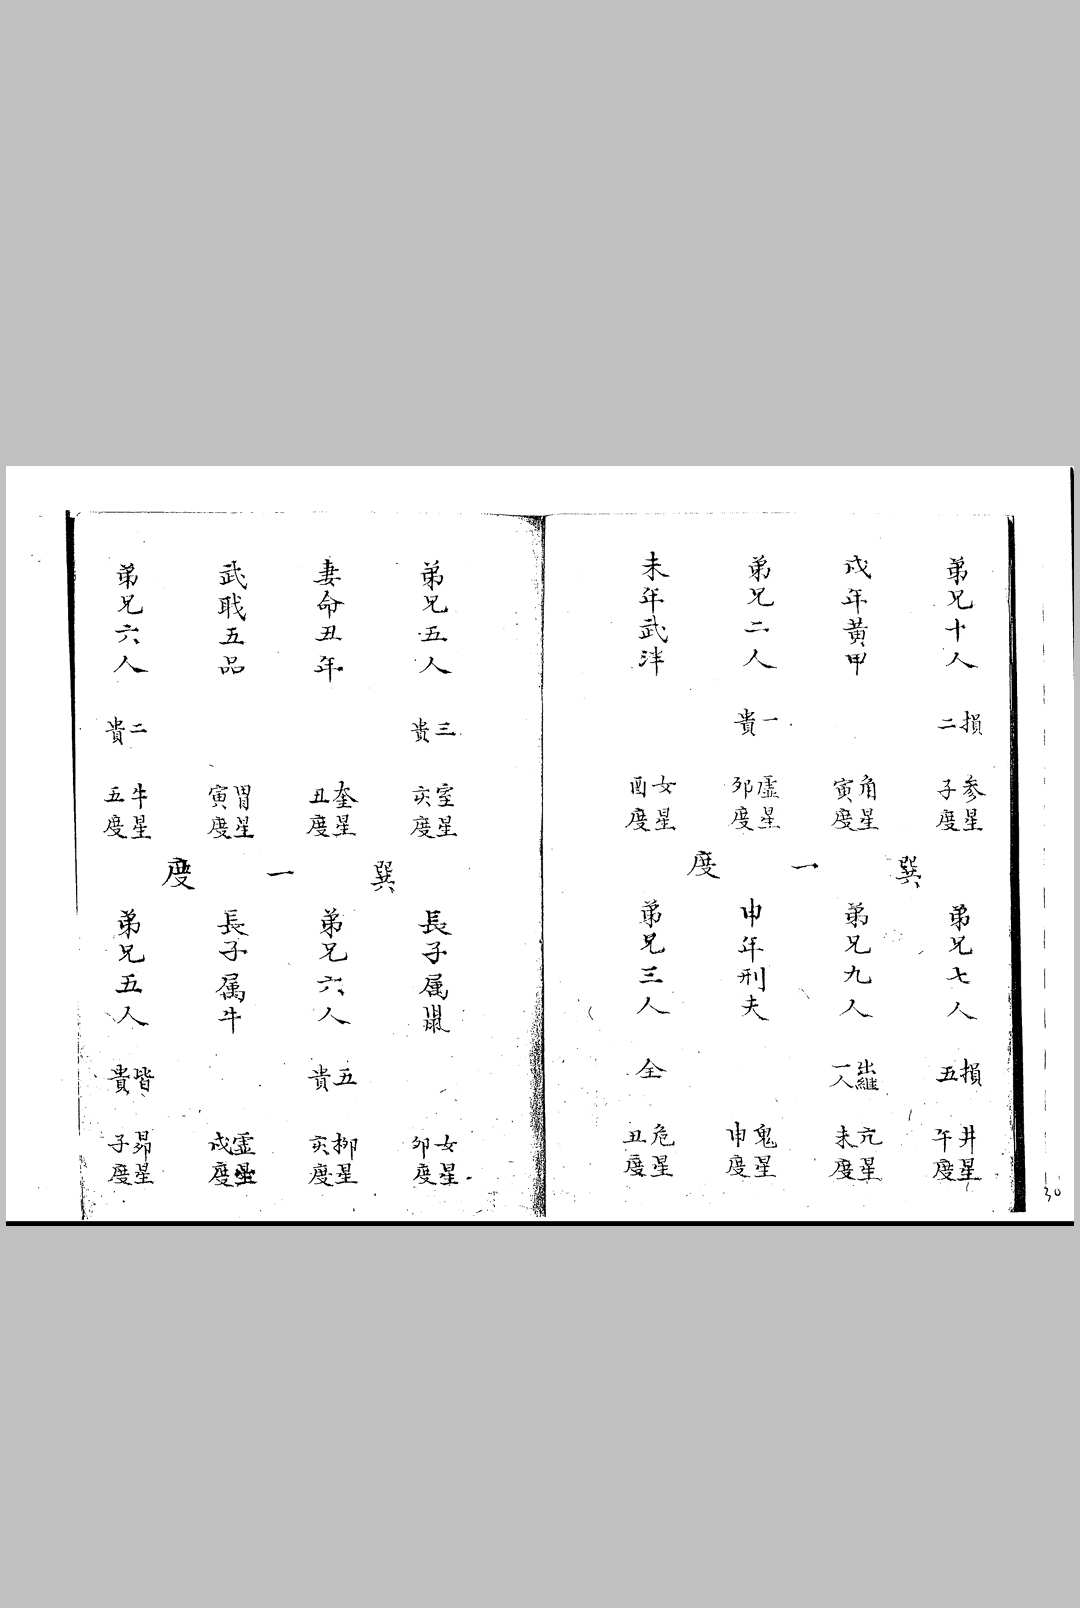 弟兄十人 損二 參星子度
戌年黃甲 角星寅度
弟兄二人 一貴 虛星卯度
未年武泮 女星酉度
巽一度
弟兄七人 損五 井星午度
弟兄九人 出繼一人 亢星未度
申年刑夫 鬼星申度
弟兄三人 全 危星丑度
弟兄五人 三貴 室星亥度
妻命丑年 奎星丑度
武職五品 胃星寅度
弟兄六人 二貴 牛星五度
巽一度
長子属鼠 女星卯度
弟兄六人 五貴 柳星亥度
長子属牛 虛星戌度
弟兄五人 皆貴 昴星子度
30